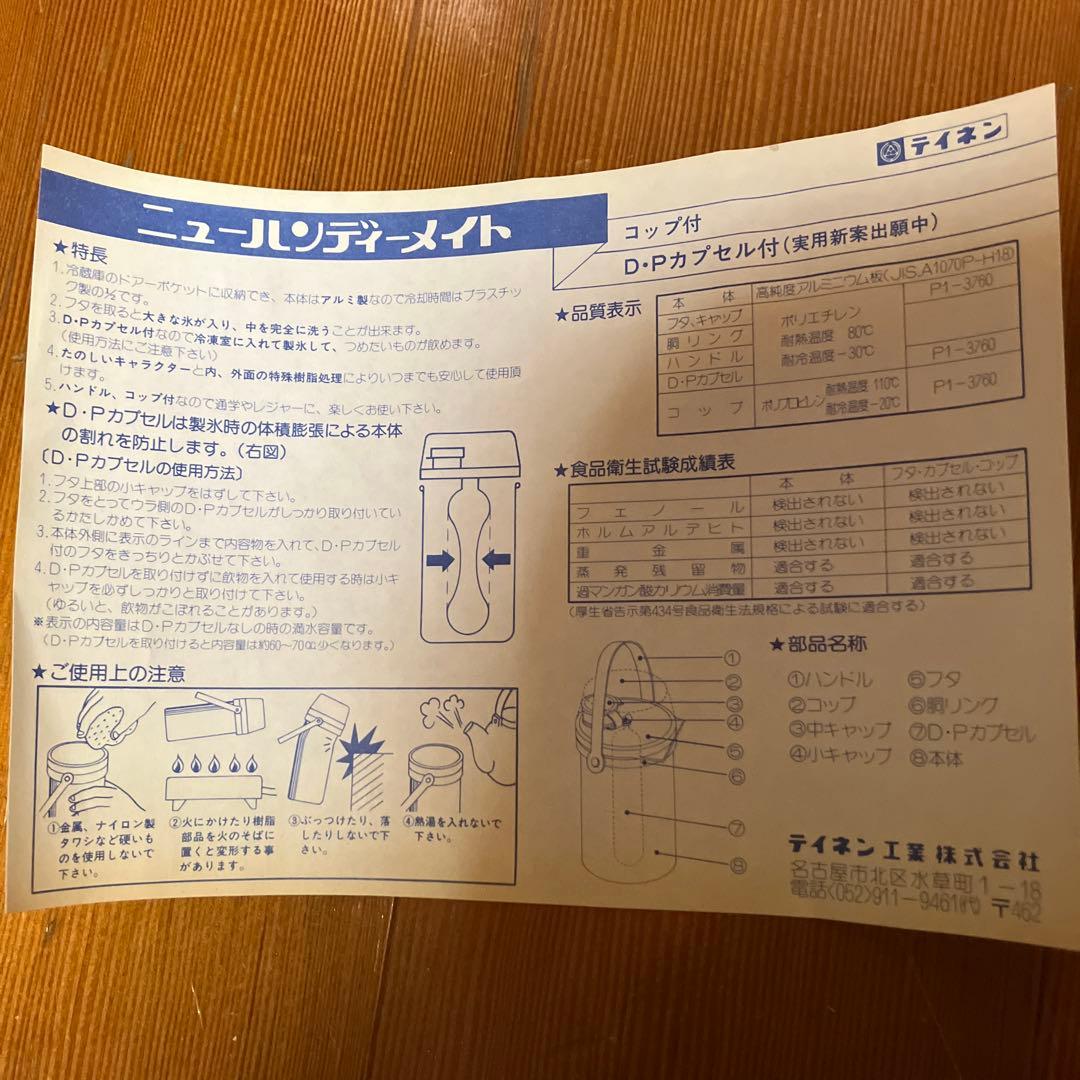 テイネン
ニューハンディーメイト
コップ付
D・Pカプセル付(実用新案出願中)
★特長
1.冷蔵庫のドアーポケットに収納でき、本体はアルミ製なので冷却時間はプラスチッ
ク製の½です。
2.フタを取ると大きな氷が入り、中を完全に洗うことが出来ます。
3.D・Pカプセル付なので冷凍室に入れて製氷して、つめたいものが飲めます。
(使用方法にご注意下さい)
4.たのしいキャラクターと内、外面の特殊樹脂処理によりいつまでも安心して使用頂
けます。
5.ハンドル、コップ付なので通学やレジャーに、楽しくお使い下さい。
★D・Pカプセルは製氷時の体積膨張による本体
の割れを防止します。(右図)
〔D・Pカプセルの使用方法〕
1.フタ上部の小キャップをはずして下さい。
2.フタをとってウラ側のD・Pカプセルがしっかり取り付いてい
るかたしかめて下さい。
3.本体外側に表示のラインまで内容物を入れて、D・Pカプセル
付のフタをきっちりとかぶせて下さい。
4.D・Pカプセルを取り付けずに飲物を入れて使用する時は小キ
ャップを必ずしっかりと取り付けて下さい。
(ゆるいと、飲物がこぼれることがあります。)
※表示の内容量はD・Pカプセルなしの時の満水容量です。
(D・Pカプセルを取り付けると内容量は約60〜70cc少くなります。)
★ご使用上の注意
①金属、ナイロン製
タワシなど硬いも
のを使用しないで
下さい。
②火にかけたり樹脂
部品を火のそばに
置くと変形する事
があります。
③ぶっつけたり、落
したりしないで下
さい。
④熱湯を入れないで
下さい。
★品質表示
本体 高純度アルミニウム板(JIS.A1070P-H18)
フタ、キャップ ポリエチレン P1-3760
胴リング 耐熱温度 80℃
ハンドル 耐冷温度-30℃
D・Pカプセル P1-3760
コップ ポリプロピレン 耐熱温度 110℃ 耐冷温度-20℃ P1-3760
★食品衛生試験成績表
本体 フタ・カプセル・コップ
フェノール 検出されない 検出されない
ホルムアルデヒト 検出されない 検出されない
重金属 検出されない 検出されない
蒸発残留物 適合する 適合する
過マンガン酸カリウム消費量 適合する 適合する
(厚生省告示第434号食品衛生法規格による試験に適合する)
★部品名称
①
②
③
④
⑤
⑥
⑦
⑧
①ハンドル ⑤フタ
②コップ ⑥胴リング
③中キャップ ⑦D・Pカプセル
④小キャップ ⑧本体
テイネン工業株式会社
名古屋市北区水草町1-18
電話<052>911-9461(代) 〒462